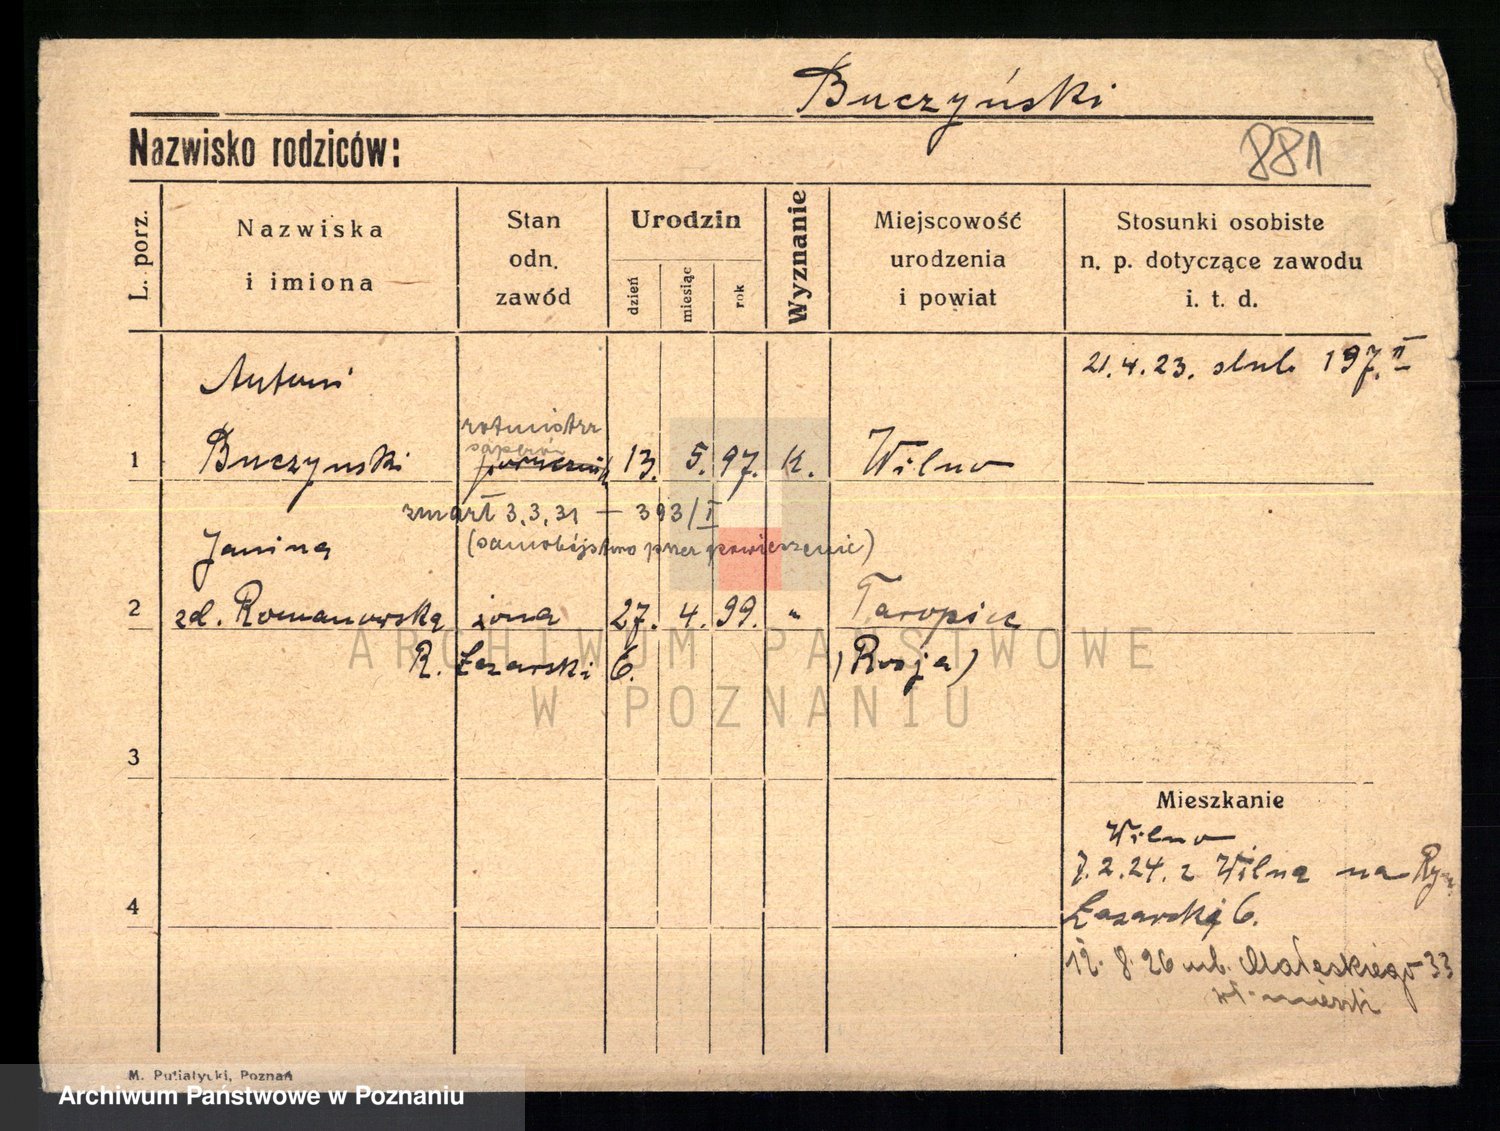 Buczyński
Nazwisko rodziców:
881
L. porz.
Nazwiska
i imiona
Stan
odn.
zawód
Urodzin
dzień
miesiąc
rok
Wyznanie
Miejscowość
urodzenia
i powiat
Stosunki osobiste
n. p. dotyczące zawodu
i. t. d.
Antoni
21.4.23. ślub 197.II
rotmistrz
saperów
1 Buczynski porucznik 13. 5. 97. K. Wilno
zmarł 3.3.31 — 393/I
Janina (samobójstwo przez powieszenie)
2 zd. Romanowska żona 27. 4. 99. "
R. Łazarski 6. (Rosja)
ARCHIWUM PAŃSTWOWE
W POZNANIU
3
Mieszkanie
Wilno
7.2.24. z Wilna na Ryn.
4 Łazarski 6.
12.8.26 ul. Małeckiego 33
wł. mieszk.
M. Putiatycki, Poznań
Archiwum Państwowe w Poznaniu